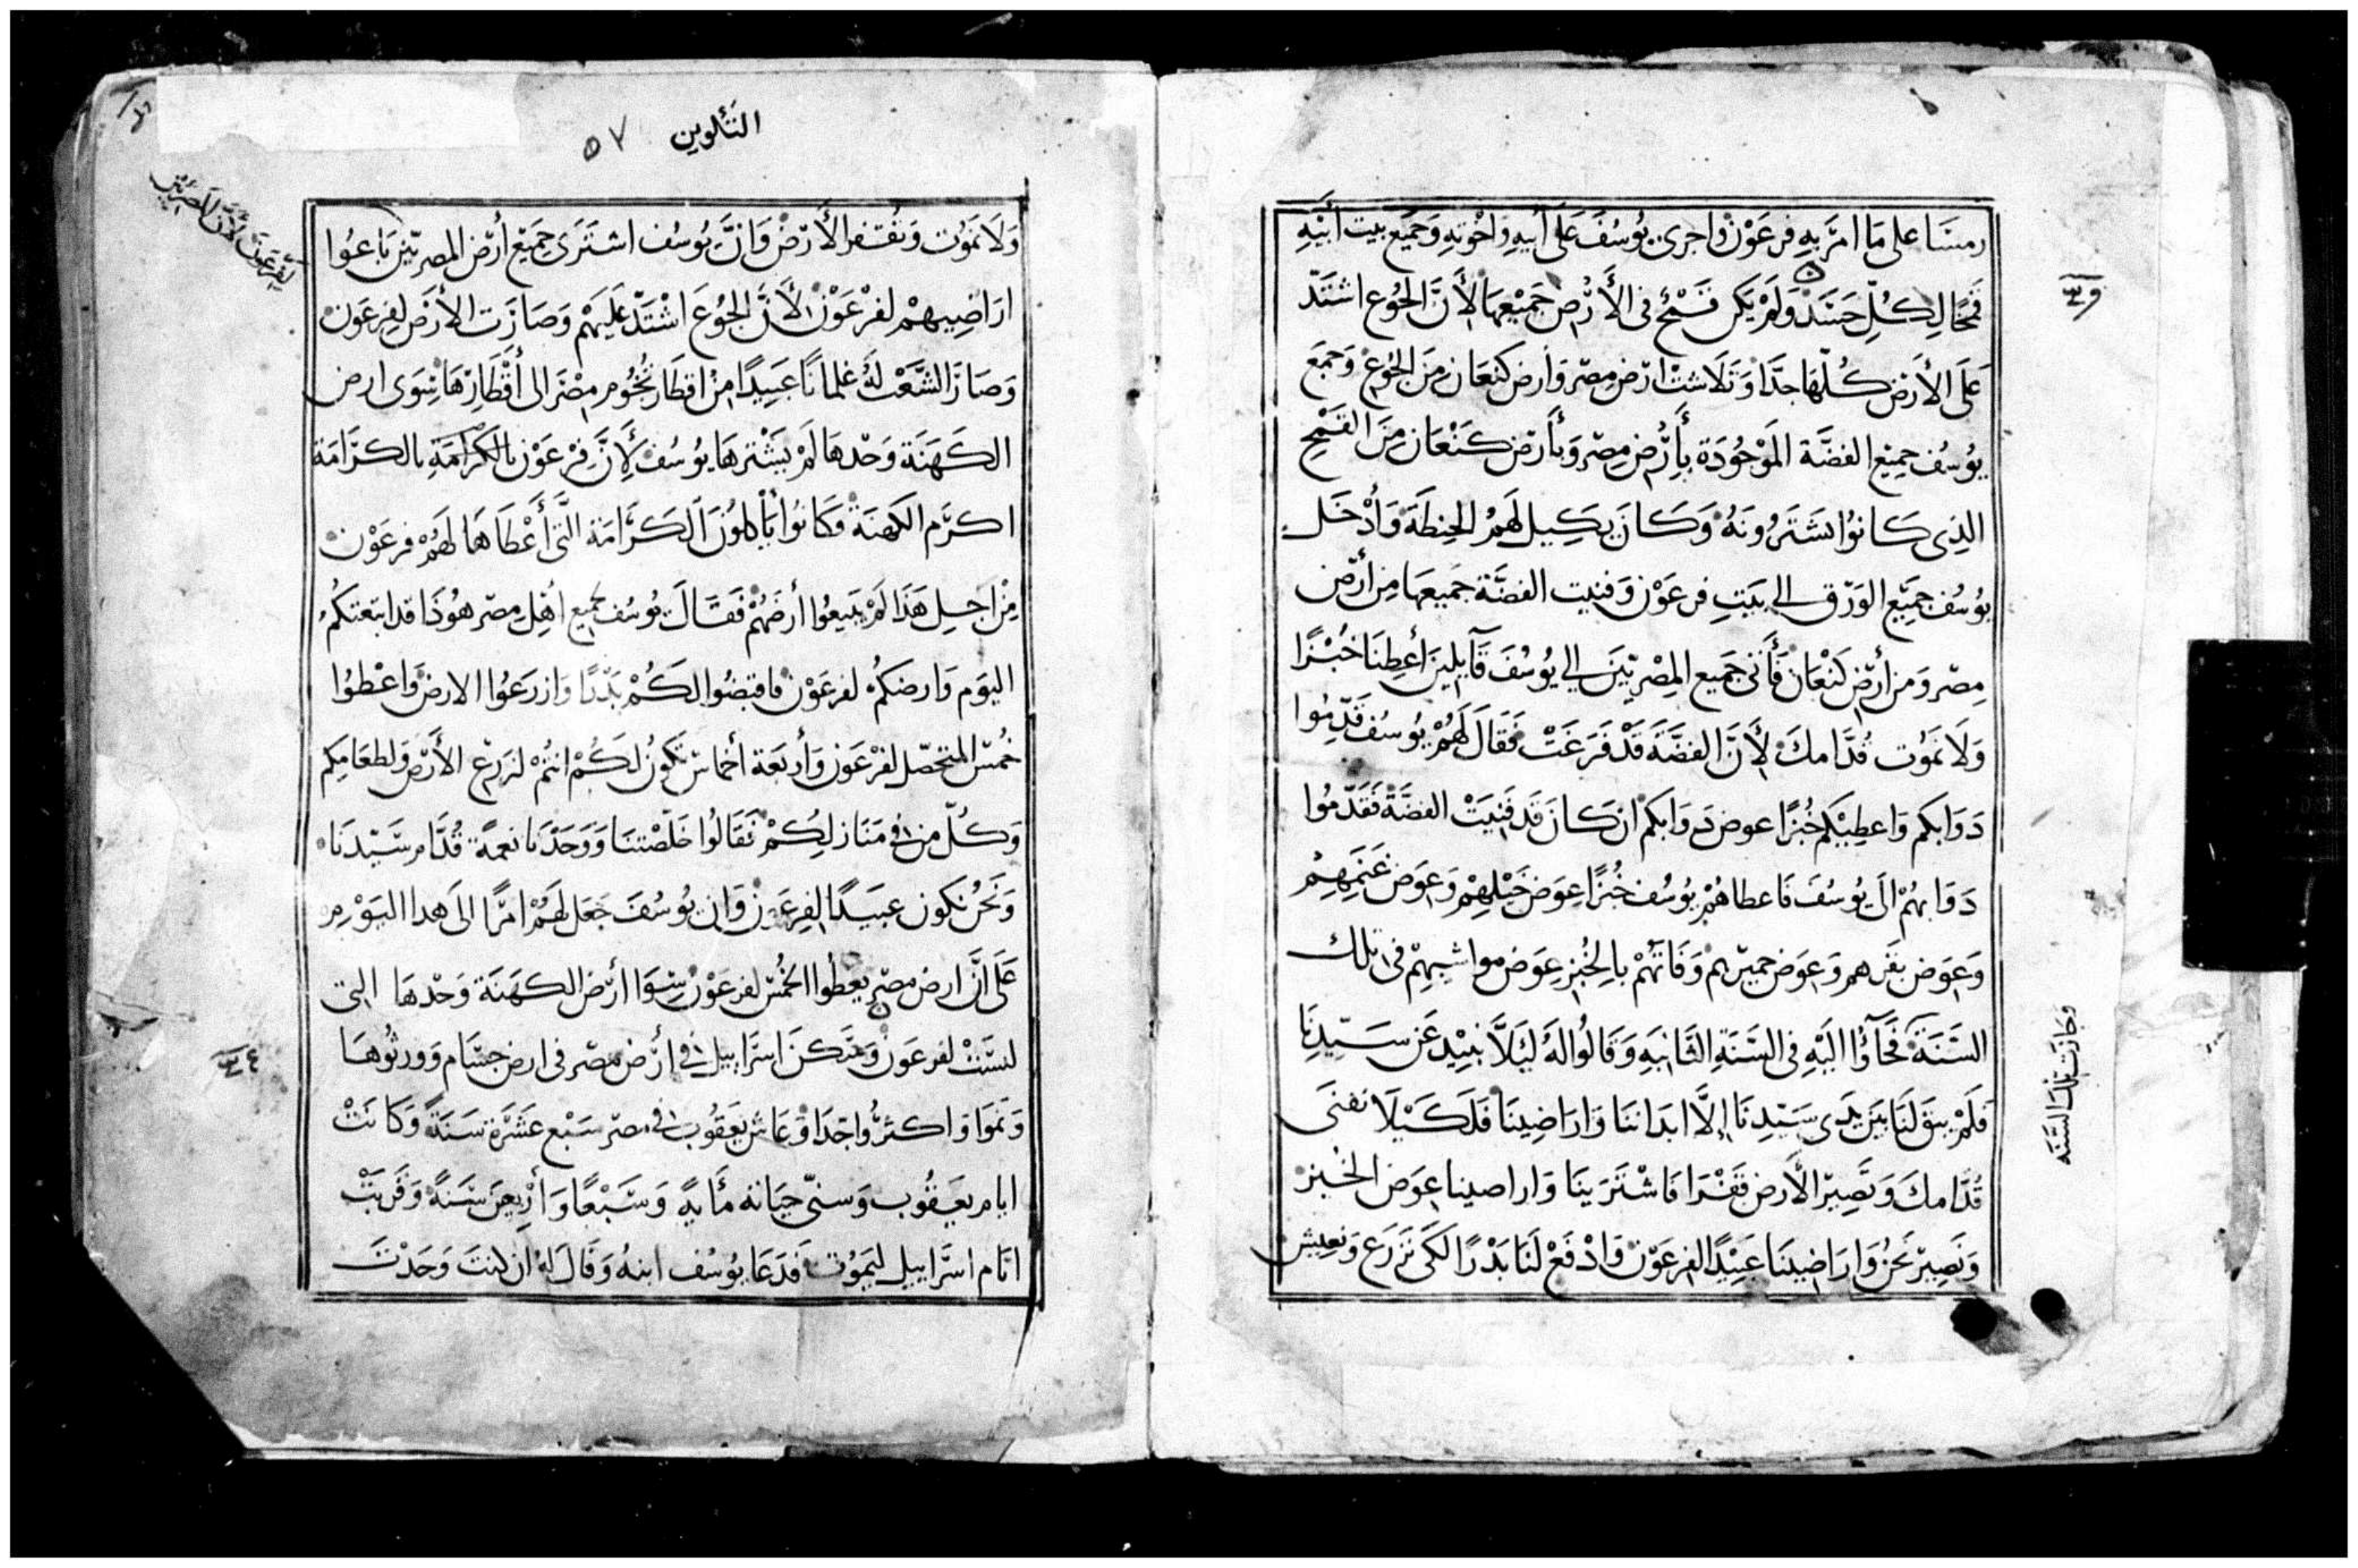 رمسا على ما امر به فرعون واجرى يوسف على أبيه واخوته وجميع بيت أبيه
قمحًا لكل جسد ولم يكن قمح فى الأرض جميعها لأن الجوع اشتد
على الأرض كلها جدا وتلاشت ارض مصر وأرض كنعان من الجوع وجمع
يوسف جميع الفضة الموجودة بأرض مصر وبأرض كنعان من القمح
الذى كانوا يشترونه وكان يكيل لهم الحنطة وأدخل
يوسف جميع الورق الى بيت فرعون وفنيت الفضة جميعها من أرض
مصر ومن أرض كنعان فأتى جميع المصريين الى يوسف قايلين أعطنا خبزًا
ولا نموت قدامك لأن الفضة قد فرغت فقال لهم يوسف قدموا
دوابكم واعطيكم خبزًا عوض دوابكم ان كان قد فنيت الفضة فقدموا
دوابهم الى يوسف فاعطاهم يوسف خبزًا عوض خيلهم وعوض غنمهم
وعوض بقرهم وعوض حميرهم وقاتهم بالخبز عوض مواشيهم فى تلك
السنة فجآؤا اليه فى السنة الثانيه وقالوا له ليلا نبيد عن سيدنا
فلم يبق لنا بين يدى سيدنا إلا ابداننا واراضينا فلكيلا نفنى
قدامك وتصير الأرض قفرا فاشترينا واراضينا عوض الخبز
ونصير نحن واراضينا عبيدًا لفرعون وادفع لنا بذرًا لكى نزرع ونعيش
وجازت تلك السنه
التكوين ٥٧
ولا نموت وتقفر الأرض وان يوسف اشترى جميع أرض المصريين باعوا
لفرعون لأن المصريين
اراضيهم لفرعون لأن الجوع اشتد عليهم وصارت الأرض لفرعون
وصار الشعب له غلمانًا عبيدًا من اقطار تخوم مصر الى أقطارها سوى ارض
الكهنة وحدها لم يشترها يوسف لأن فرعون بالكرامة بالكرامة
اكرم الكهنة وكانوا يأكلون الكرامة التى أعطاها لهم فرعون
من اجل هذا لم يبيعوا أرضهم فقال يوسف لجميع اهل مصر هوذا قد ابتعتكم
اليوم وارضكم لفرعون فاقبضوا لكم بذرًا وازرعوا الارض واعطوا
خمس المتحصل لفرعون وأربعة أخماس تكون لكم انتم لزرع الأرض ولطعامكم
وكل من فى منازلكم فقالوا خلصتنا ووجدنا نعمة قدام سيدنا
ونحن نكون عبيدًا لفرعون وان يوسف جعل لهم امرًا الى هدا اليوم
على ان ارض مصر يعطوا الخمس لفرعون سوا أرض الكهنة وحدها التى
ليست لفرعون وسكن اسراييل فى أرض مصر فى ارض جسام وورثوها
ونموا واكثروا جدا وعاش يعقوب فى مصر سبع عشرة سنة وكانت
ايام يعقوب وسنى حياته مأية وسبعًا وأربعين سنة وقربت
ايام اسراييل ليموت فدعا يوسف ابنه وقال له ان كنت وجدت